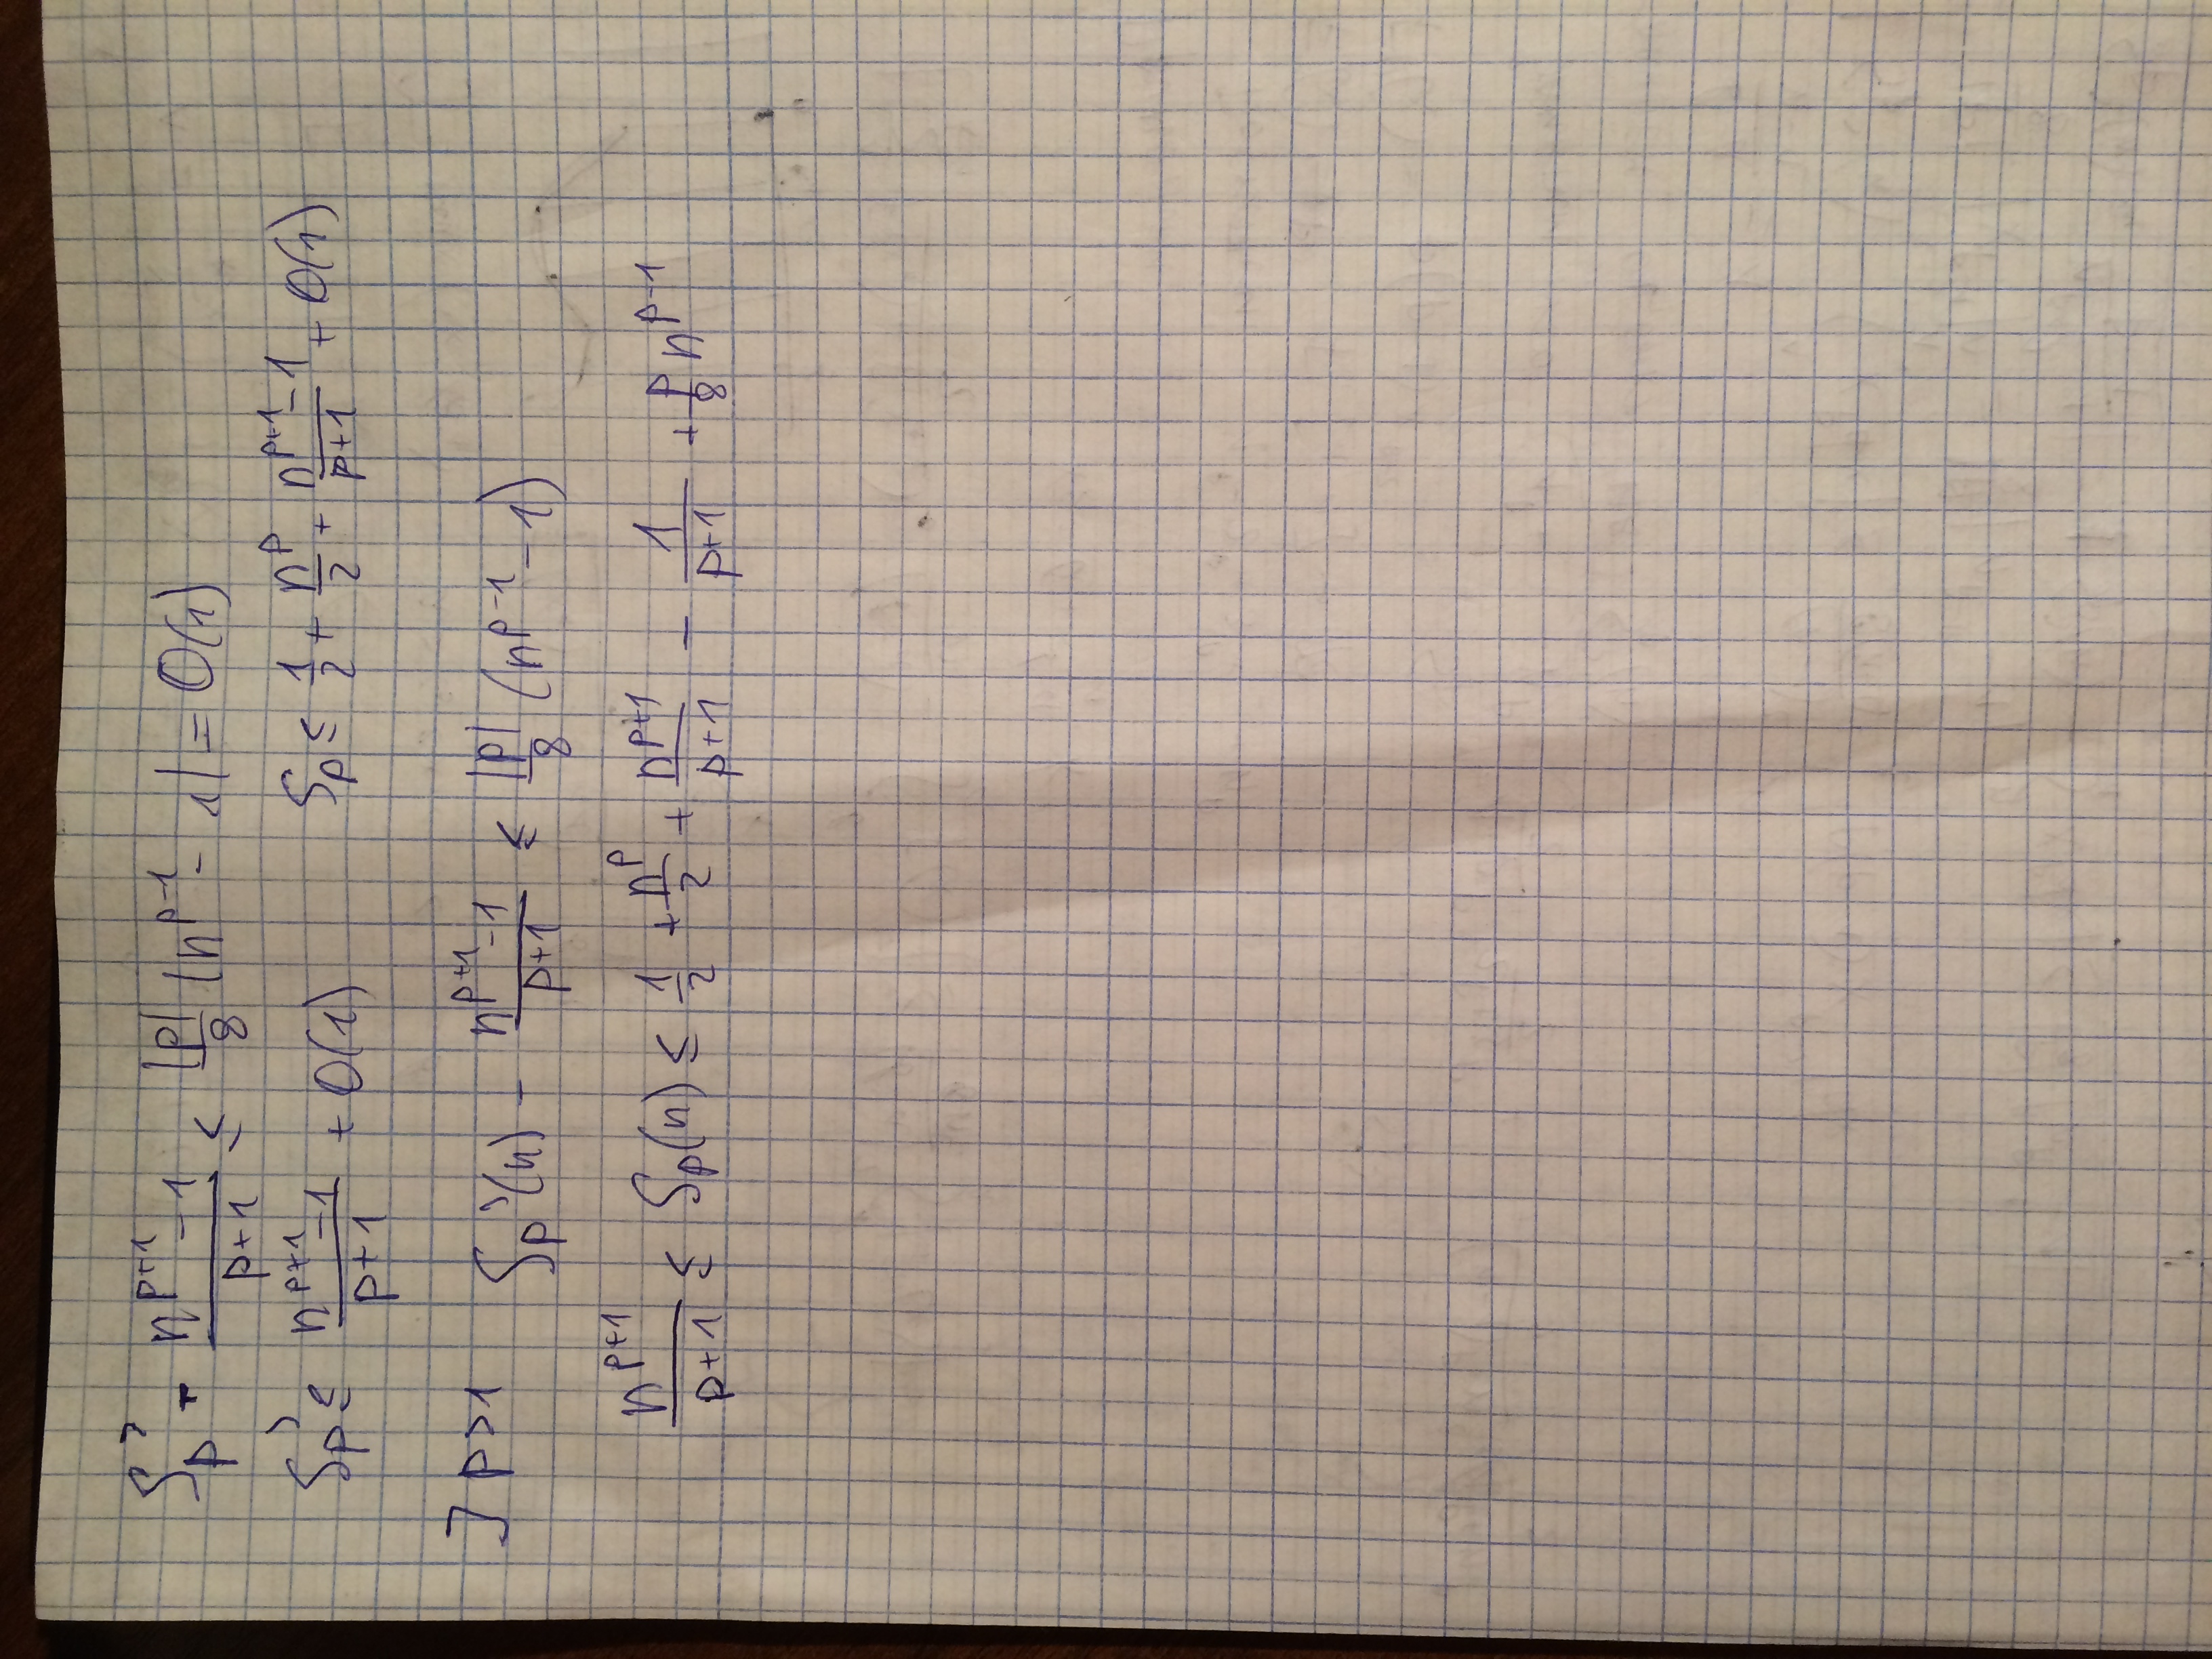 S_p' - \frac{n^{p+1}-1}{p+1} ≤ \frac{|p|}{8} |n^{p-1} - 1| = O(1)
S_p' ≤ \frac{n^{p+1}-1}{p+1} + O(1) S_p ≤ \frac{1}{2} + \frac{n^p}{2} + \frac{n^{p+1}-1}{p+1} + O(1)
] p>1 S_p'(n) - \frac{n^{p+1}-1}{p+1} ≤ \frac{|p|}{8} (n^{p-1} - 1)
\frac{n^{p+1}}{p+1} ≤ S_p(n) ≤ \frac{1}{2} + \frac{n^p}{2} + \frac{n^{p+1}}{p+1} - \frac{1}{p+1} + \frac{p}{8} n^{p-1}